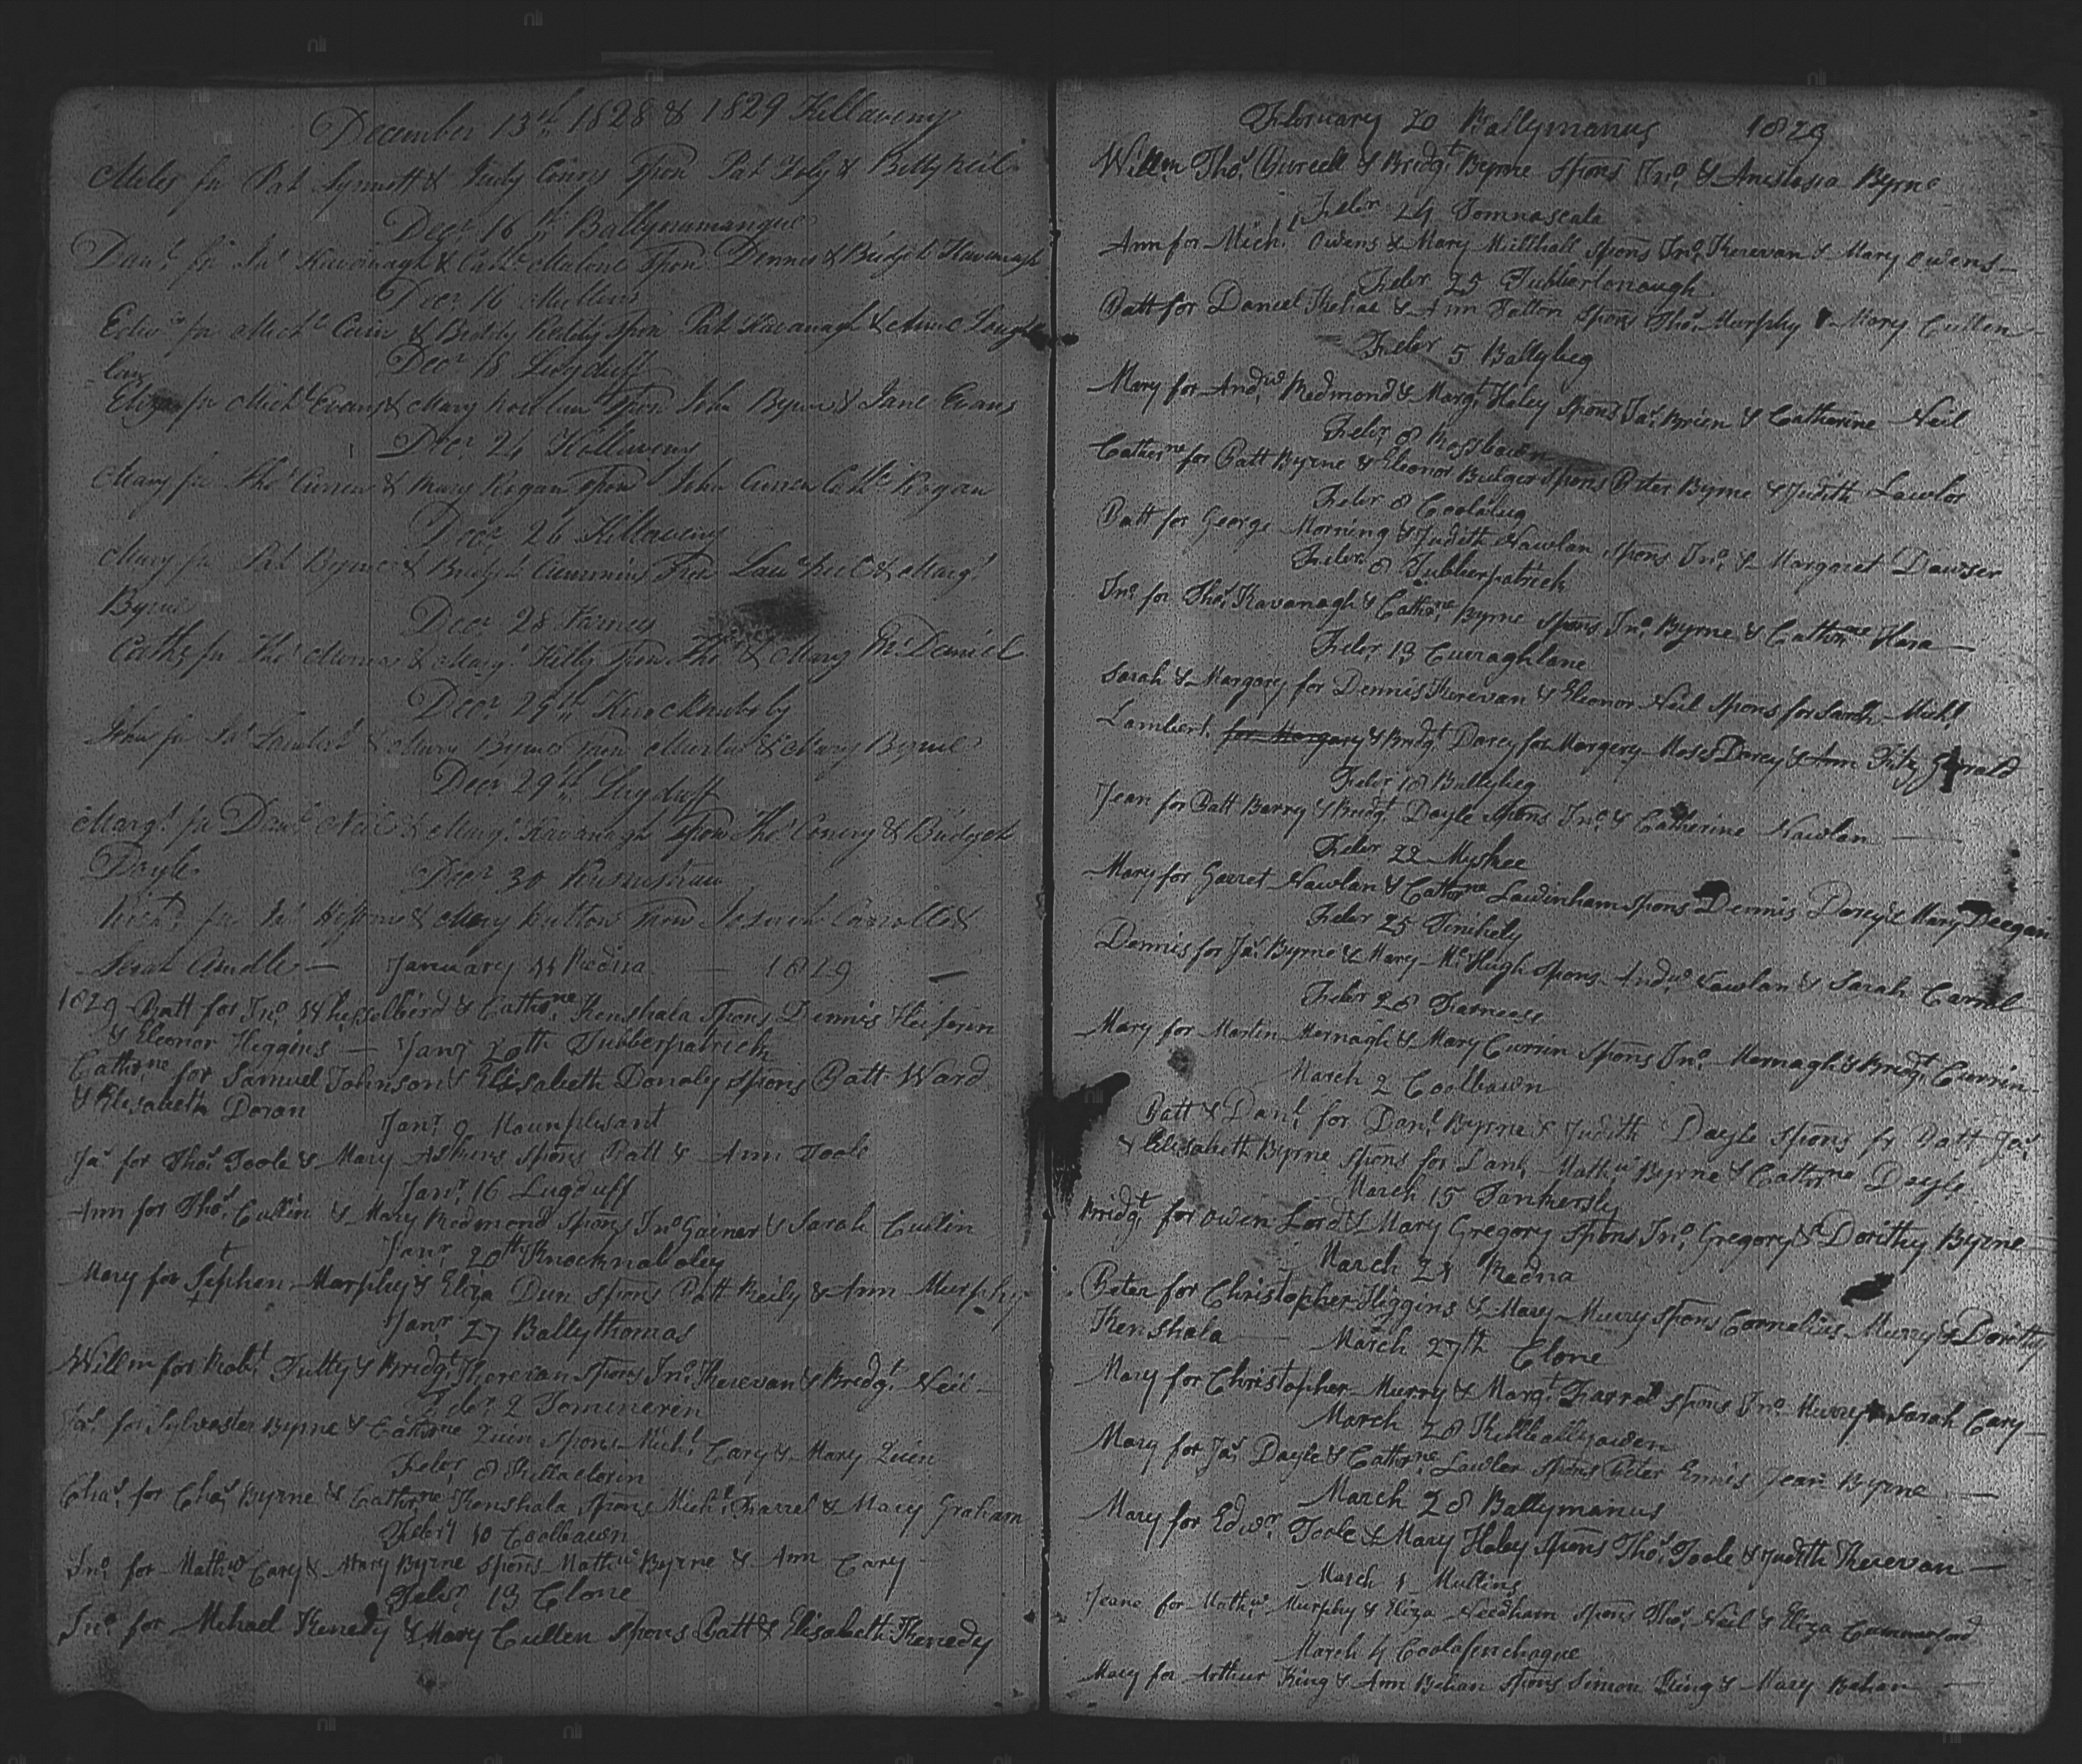 December 13th 1828 & 1829 Killaveny
Miles for Pat Synnott & Judy Conry Spon Pat Foly & Betty Neil
Decr 16th
Danl for Jas Kavanagh & Cathe Malone Spon Dennis & Bridget Kavanagh
Decr 16 Mullins
Edwd for Michl & Biddy Reddy Spon Pat Kavanagh & Anne
Decr 18 Lugduff
Eliza for Michl Evans & Mary Nowlan Spon John Byrne & Jane Evans
Decr 24 Killaveny
Mary for Thos Curren & Mary Rogan Spon John Curren Cathe Rogan
Decr 26 Killaveny
Mary for Pat Byrne & Bridget Cummins Spon Lau Neil & Margt
Byrne
Decr 28
Cathe for Thos & Margt Kelly Spon Thos & Mary McDaniel
Decr 29th
John for Jas Lambert & Mary Byrne Spon Martin & Mary Byrne
Decr 29th Lugduff
Margt for Danl Neil & Margt Kavanagh Spon Thos Conry & Bridget
Doyle
Decr 30
Richd for & Mary Hutton Spon Joseph Carroll &
Sarah
January 11 Redna 1829
1829 Patt for Jno & Cathrne Kenshala Spons Dennis
& Eleonor Higgins — Janr 20th Tubberpatrick
Cathrne for Samuel Johnson & Elisabeth Donoly Spons Patt Ward
& Elisabeth Doran
Janr 9 Mounplesant
Jas for Thos Toole & Mary Askins Spons Patt & Ann Toole
Janr 16 Lugduff
Ann for Thos Cullin & Mary Redmond Spons Jno Gainer & Sarah Cullin
Janr 20th Knocknaboley
Mary for Stephen Murphy & Eliza Dun Spons Patt Reily & Ann Murphy
Janr 27 Ballythomas
Willm for Robt Tutty & Bridgt Kerevan Spons Jno Kerevan & Bridgt Neil
Febr 2 Tominerin
Jas for Sylvester Byrne & Cathrne Quin Spons Michl Cary & Mary Quin
Febr 8 Killaclorin
Chas for Chas Byrne & Cathrne Kenshala Spons Michl Farrel & Mary Graham
Febry 10 Coolbawn
Jno for Mathw Cary & Mary Byrne Spons Mathw Byrne & Ann Cary
Febr 13 Clone
Jno for Mihael Kenedy & Mary Cullen Spons Patt & Elisabeth Kenedy
February 20 Ballymanus 1829
Willm Thos Purcell & Bridgt Byrne Spons Jno & Anistasia Byrne
Febr 24 Tomnascala
Ann for Michl Owens & Mary Millhall Spons Jno Kerevan & Mary Owens
Febr 25 Tubberlonaugh
Patt for Daniel Kehae & Ann Fallon Spons Thos Murphy & Mary Cullen
Febr 5 Ballybeg
Mary for Andw Redmond & Margt Haley Spons Jas Brien & Catherine Neil
Febr 8 Rossbawn
Cathrne for Patt Byrne & Eleonor Bulger Spons Peter Byrne & Judith Lawlor
Febr 8 Coolalug
Patt for George Morning & Judith Nawlan Spons Jno & Margaret Dowser
Febr 8 Tubberpatrick
Jno for Thos Kavanagh & Cathrne Byrne Spons Jno Byrne & Cathrne Hara
Febr 13 Curraghlane
Sarah & Margary for Dennis Kerevan & Eleonor Neil Spons for Sarah Michl
Lambert for Margary & Bridgt Darcy for Margery Moses Darcy & Ann Fitz Gerald
Febr 18 Ballybeg
Jean for Patt Barry & Bridgt Doyle Spons Jno & Catherine Nawlan
Febr 22 Myshee
Mary for Garret Nawlan & Cathrne Lawinham Spons Dennis Darcy & Mary Deegan
Febr 25 Tinihely
Dennis for Jas Byrne & Mary McHugh Spons Andw Nawlan & Sarah Carrol
Febr 28 Farneese
Mary for Martin Mernagh & Mary Currin Spons Jno Mernagh & Bridgt Currin
March 2 Coolbawn
Patt & Danl for Danl Byrne & Judith Doyle Spons fr Patt Jas
& Elisabeth Byrne Spons for Danl Mathw Byrne & Cathrne Doyle
March 15 Tankersly
Bridgt for Owen Lord & Mary Gregory Spons Jno Gregory & Dorithy Byrne
March 21 Redna
Peter for Christopher Higgins & Mary Murry Spons Cornelius Murry & Dorithy
Kenshala March 27th Clone
Mary for Christopher Murry & Margt Farrel Spons Jno Murry & Sarah Cary
March 28 Killballyowen
Mary for Jas Doyle & Cathrne Lawler Spons Peter Ennis Jean Byrne
March 28 Ballymanus
Mary for Edwr Toole & Mary Haley Spons Thos Toole & Judith Kerevan
March 1 Mullins
Jeane for Mathw Murphy & Eliza Needham Spons Thos Neil & Eliza Cummerford
March 4 Coolafinchogue
Mary for Arthur King & Ann Behan Spons Simon King & Mary Behan